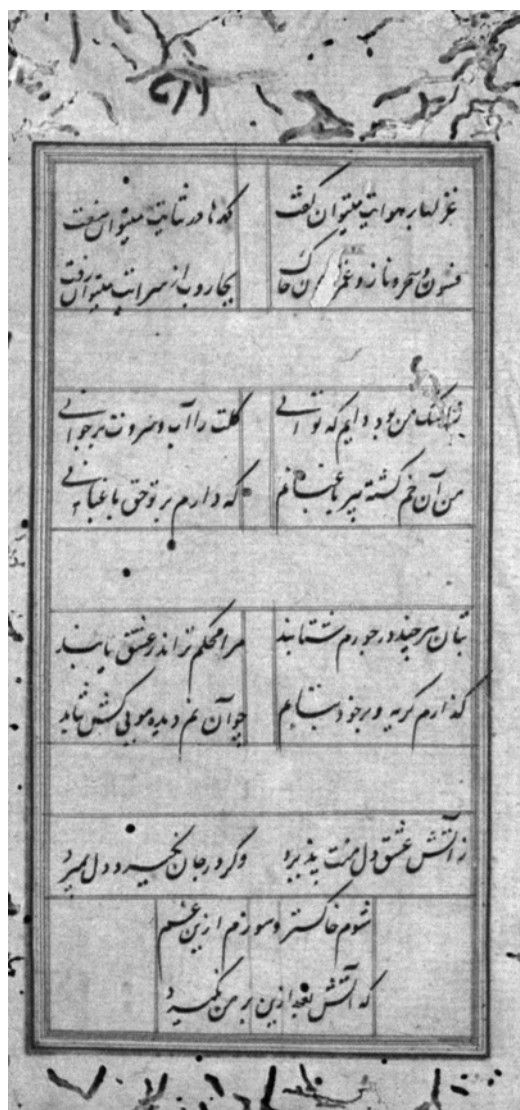 غزلها بر هوایت میتوان گفت گهرها در ثنایت میتوان سفت
فسون و سحر و ناز و خاک بجاروب از سرایت میتوان رفت
اشک من بود دایم که توانی گلت را آب و سروت نوجوانی
من آن خم گشته پیر باغبانم که دارم بر تو حق باغبانی
بتان هر چند در جورم شتابند مرا محکم تر اندر عشق یابند
گذارم گریه و بر خود بتابم چو آن نم دیده مویی کش بتابند
ز آتش عشق دل منت پذیرد وگر در جان نگیرد دل بمیرد
شوم خاکستر و سوزم ازین غم
که آتش بعد ازین بر من نگیرد